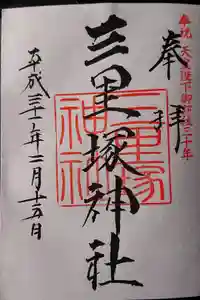 祝 天皇陛下御在位三十年
奉拝
三里塚神社
三里塚
神社
平成三十一年二月十五日